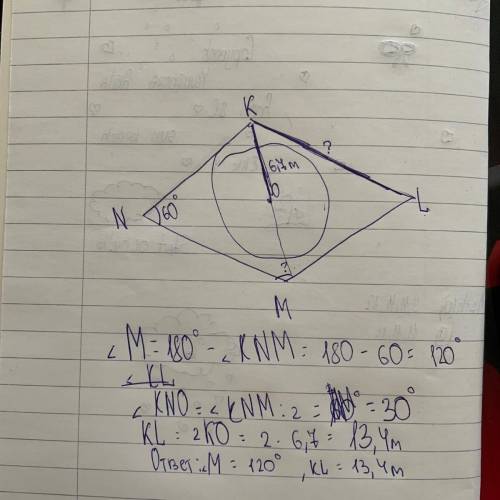 K
?
6,7 m
O
N
60°
L
?
M
∠M = 180° - ∠KNM = 180 - 60 = 120°
∠KL
∠KNO = ∠KNM : 2 = = 30°
KL = 2KO = 2 · 6,7 = 13,4 m
Ответ: ∠M = 120°, KL = 13,4 m